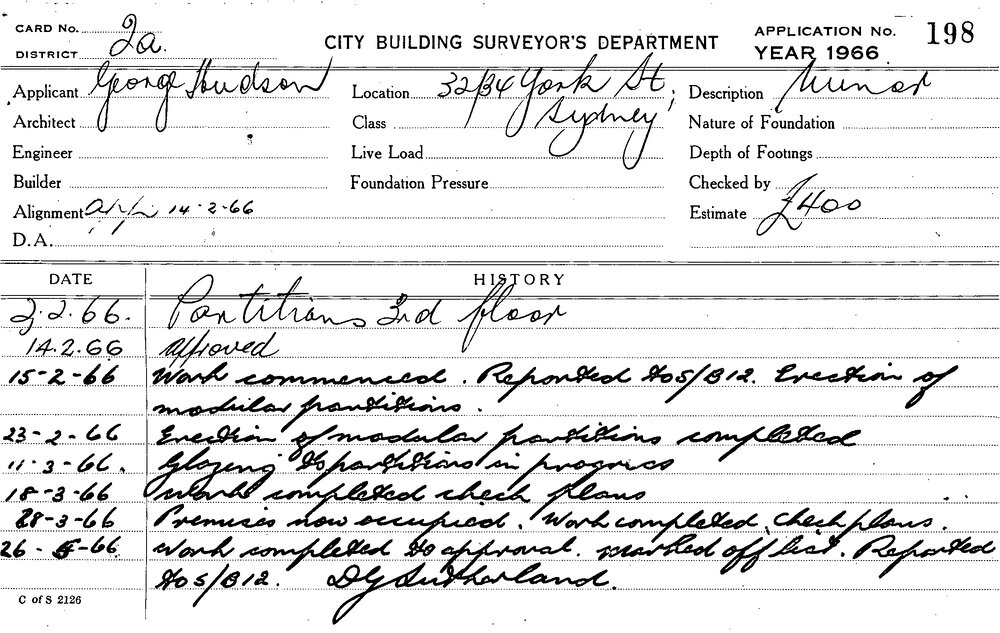 CARD No.
DISTRICT 2a.
CITY BUILDING SURVEYOR'S DEPARTMENT
APPLICATION No. 198
YEAR 1966
Applicant George Hudson
Location 32/34 York St, Sydney
Description Minor
Architect
Class
Nature of Foundation
Engineer
Live Load
Depth of Footings
Builder
Foundation Pressure
Checked by
Alignment 14-2-66
Estimate £400
D.A.
DATE HISTORY
3.2.66. Partitions 3rd floor
14.2.66 approved
15-2-66 Work commenced. Reported to S/B12. Erection of
modular partitions.
23-2-66 Erection of modular partitions completed
11-3-66. Glazing to partitions in progress
18-3-66 Work completed check plans
28-3-66 Premises now occupied. Work completed, check plans.
26-5-66 Work completed to approval. marked off list. Reported
to S/B12. DG Sutherland.
C of S 2126